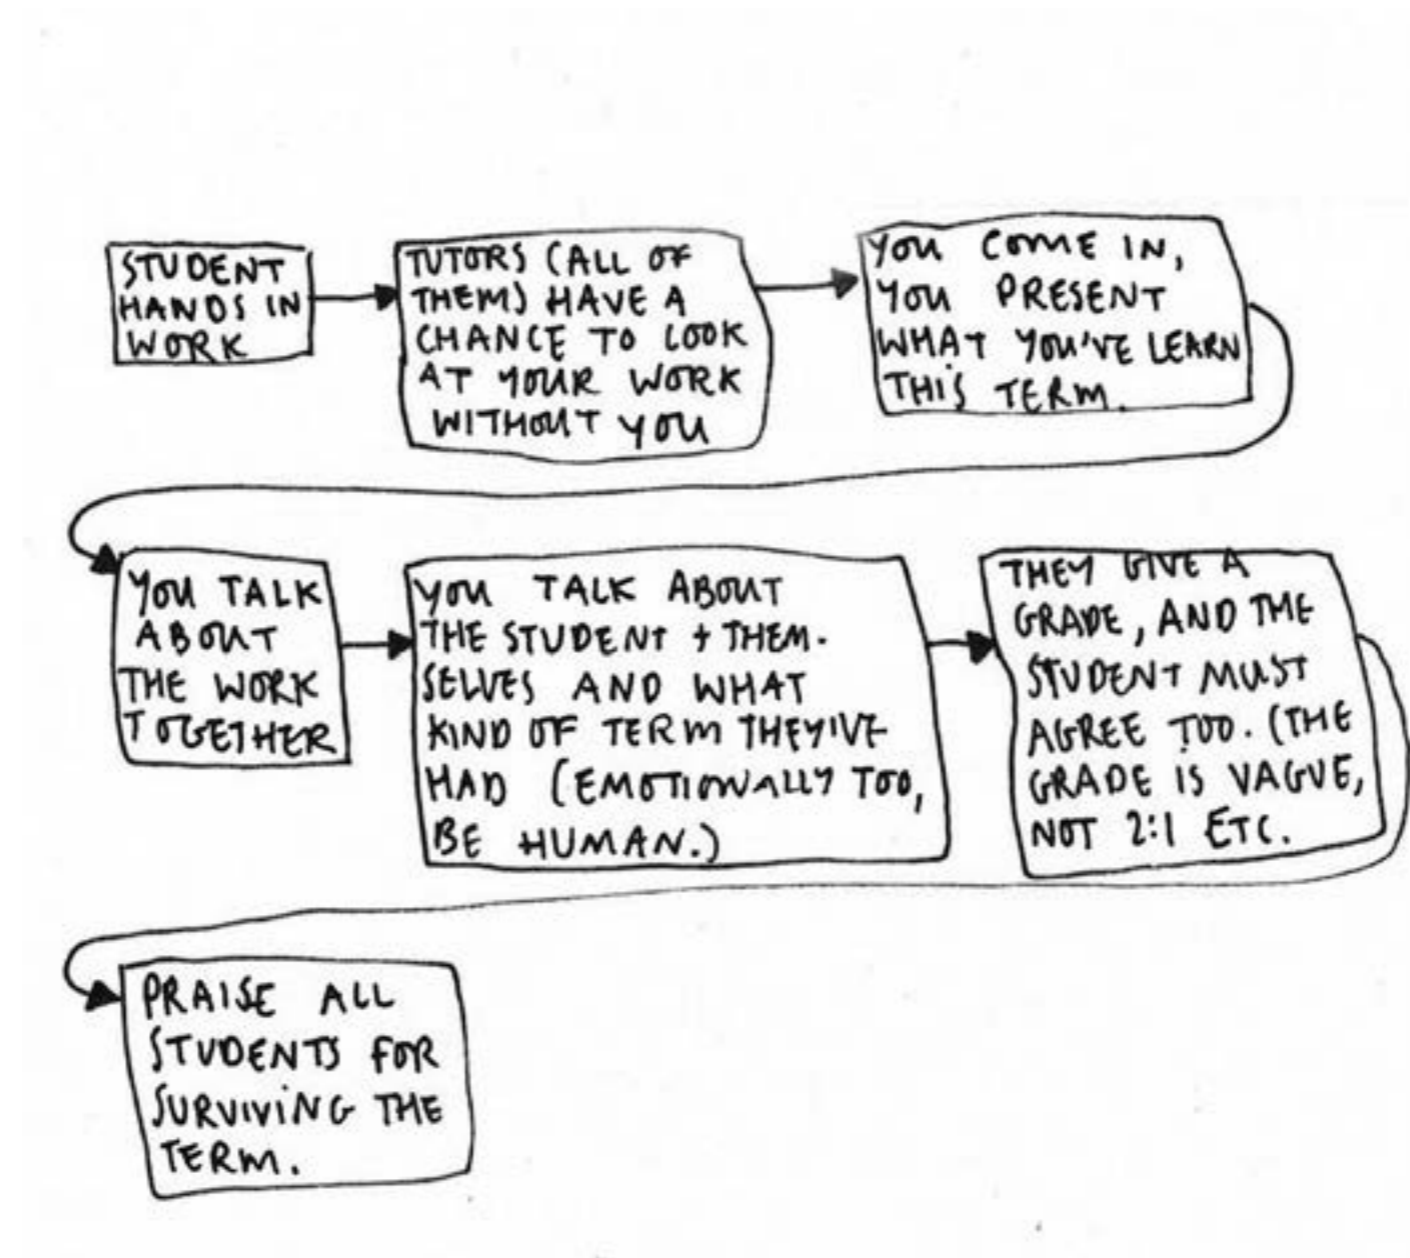 STUDENT
HANDS IN
WORK
TUTORS (ALL OF
THEM) HAVE A
CHANCE TO LOOK
AT YOUR WORK
WITHOUT YOU
YOU COME IN,
YOU PRESENT
WHAT YOU'VE LEARN
THIS TERM.
YOU TALK
ABOUT
THE WORK
TOGETHER
YOU TALK ABOUT
THE STUDENT + THEM-
SELVES AND WHAT
KIND OF TERM THEY'VE
HAD (EMOTIONALLY TOO,
BE HUMAN.)
THEY GIVE A
GRADE, AND THE
STUDENT MUST
AGREE TOO. (THE
GRADE IS VAGUE,
NOT 2:1 ETC.
PRAISE ALL
STUDENTS FOR
SURVIVING THE
TERM.